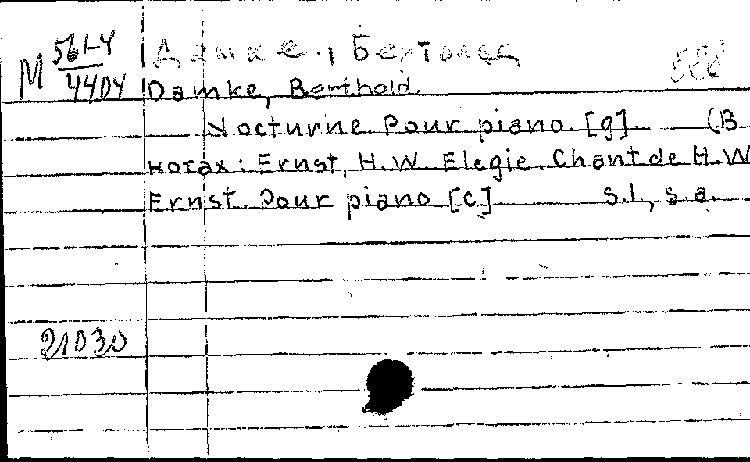 М 561-4/4404 Дамке, Бертольд
Damke, Berthold.
Nocturne. Pour piano. [g] (В
нотах: Ernst, H.W. Elegie. Chant de H.W
Ernst. Pour piano [c] s.l., s.a.
21030